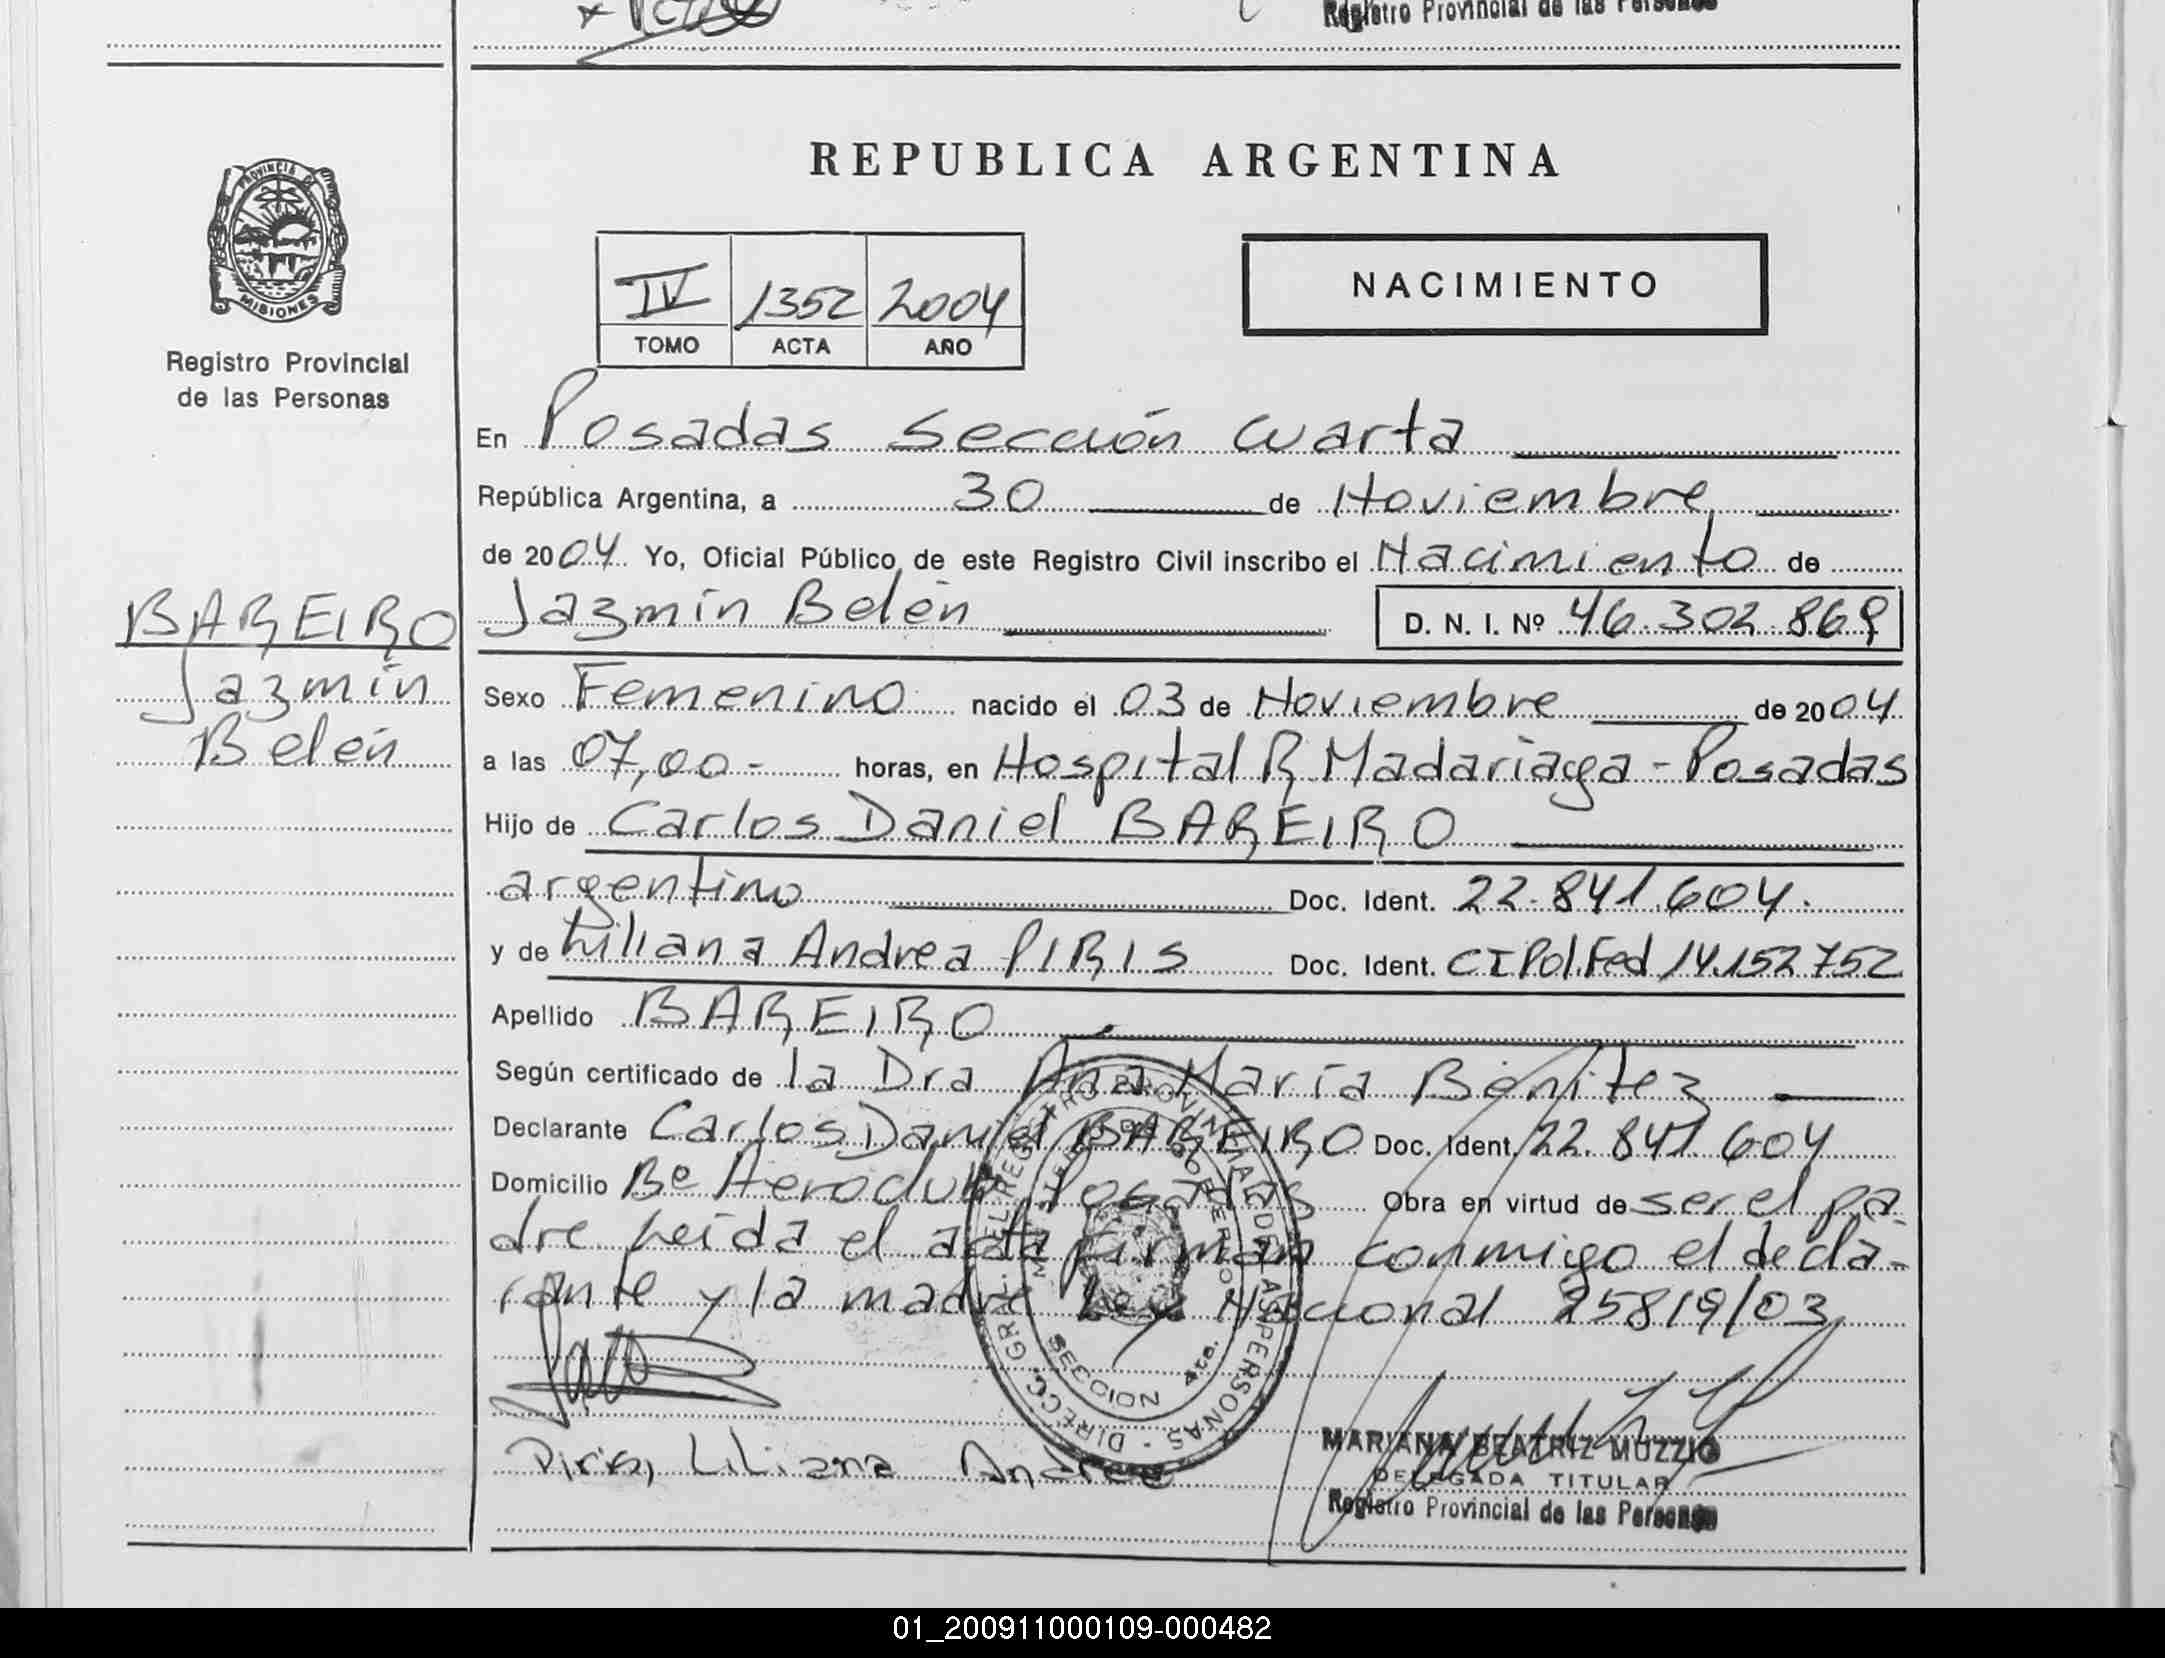 Registro Provincial de las Personas
PROVINCIA DE
MISIONES
Registro Provincial
de las Personas
REPUBLICA ARGENTINA
IV 1352 2004
TOMO ACTA AÑO
NACIMIENTO
En Posadas Sección Cuarta
República Argentina, a 30 de Noviembre
de 2004 Yo, Oficial Público de este Registro Civil inscribo el Nacimiento de
Jazmín Belén D. N. I. Nº 46.302.869
BAREIRO
Jazmín
Belén
Sexo Femenino nacido el 03 de Noviembre de 2004
a las 07,00- horas, en Hospital R Madariaga - Posadas
Hijo de Carlos Daniel BAREIRO
argentino Doc. Ident. 22.841.604.
y de Liliana Andrea PIRIS Doc. Ident. CI Pol.Fed 14.152752
Apellido BAREIRO
Según certificado de la Dra Ana María Benitez
Declarante Carlos Daniel BAREIRO Doc. Ident. 22.841.604
Domicilio Bº Posadas Obra en virtud de ser el pa
dre Leída el acta firman conmigo el decla-
rante y la madre Ley Nacional 25819/03
DIRECC. GRAL. DEL REGISTRO PROVINCIAL DE LAS PERSONAS
SECCION 4ta.
Piris, Liliana Andrea
MARIANA BEATRIZ MUZZIO
DELEGADA TITULAR
Registro Provincial de las Personas
01_200911000109-000482